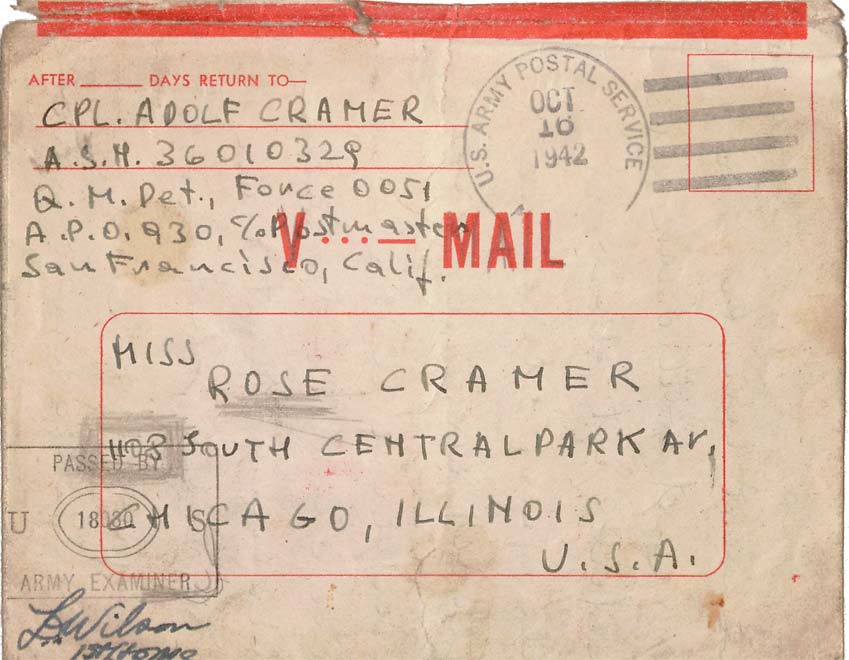 AFTER ______ DAYS RETURN TO—
CPL. ADOLF CRAMER
A.S.N. 36010329
Q.M. Det., Force 0051
A.P.O. 930, c/o Postmaster
San Francisco, Calif.
U.S. ARMY POSTAL SERVICE
OCT
16
1942
V...— MAIL
MISS
ROSE CRAMER
SOUTH CENTRAL PARK AV,
CHICAGO, ILLINOIS
U.S.A.
PASSED BY
U 18080 S
ARMY EXAMINER
Wilson